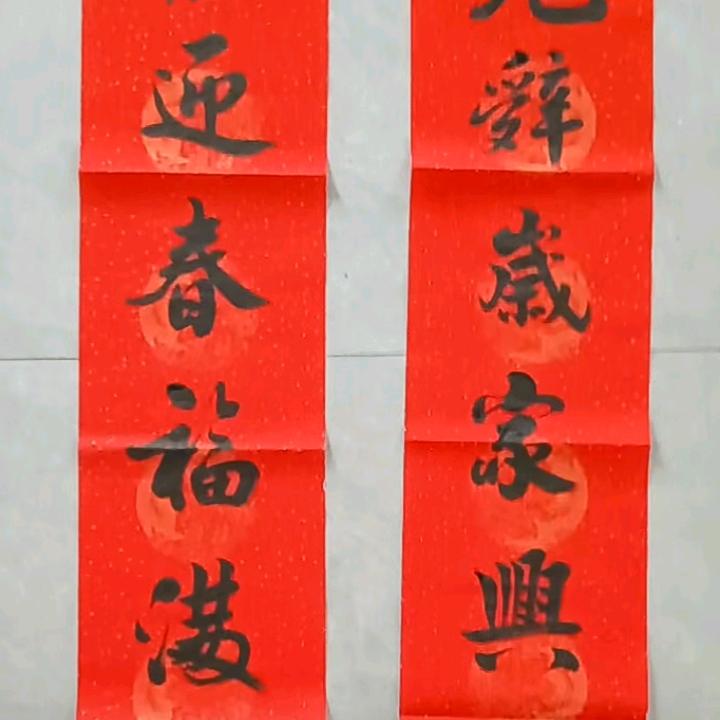 辭歲家興
迎春福满